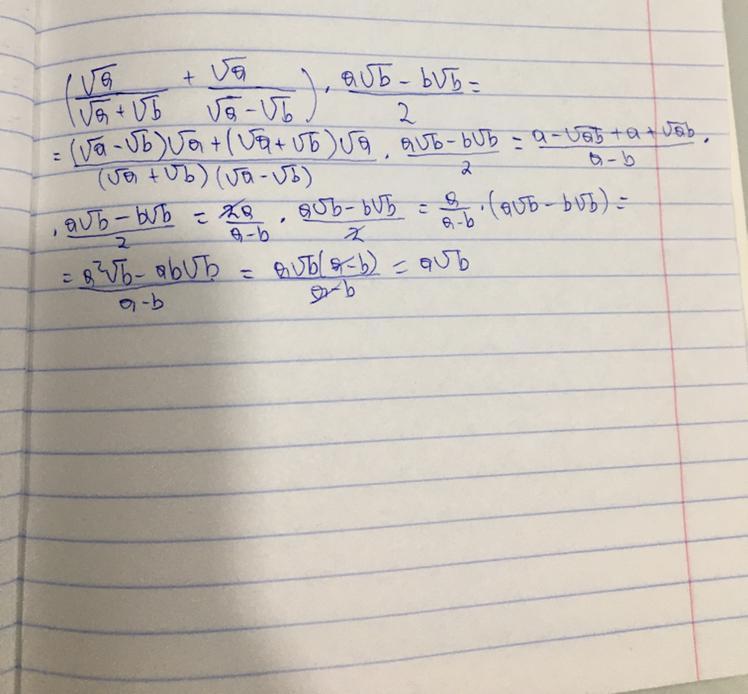 (√a/(√a + √b) + √a/(√a - √b)) · (a√b - b√b)/2 =
= ((√a - √b)√a + (√a + √b)√a)/((√a + √b)(√a - √b)) · (a√b - b√b)/2 = (a - √ab + a + √ab)/(a - b) ·
· (a√b - b√b)/2 = 2a/(a - b) · (a√b - b√b)/2 = a/(a - b) · (a√b - b√b) =
= (a²√b - ab√b)/(a - b) = a√b(a - b)/(a - b) = a√b